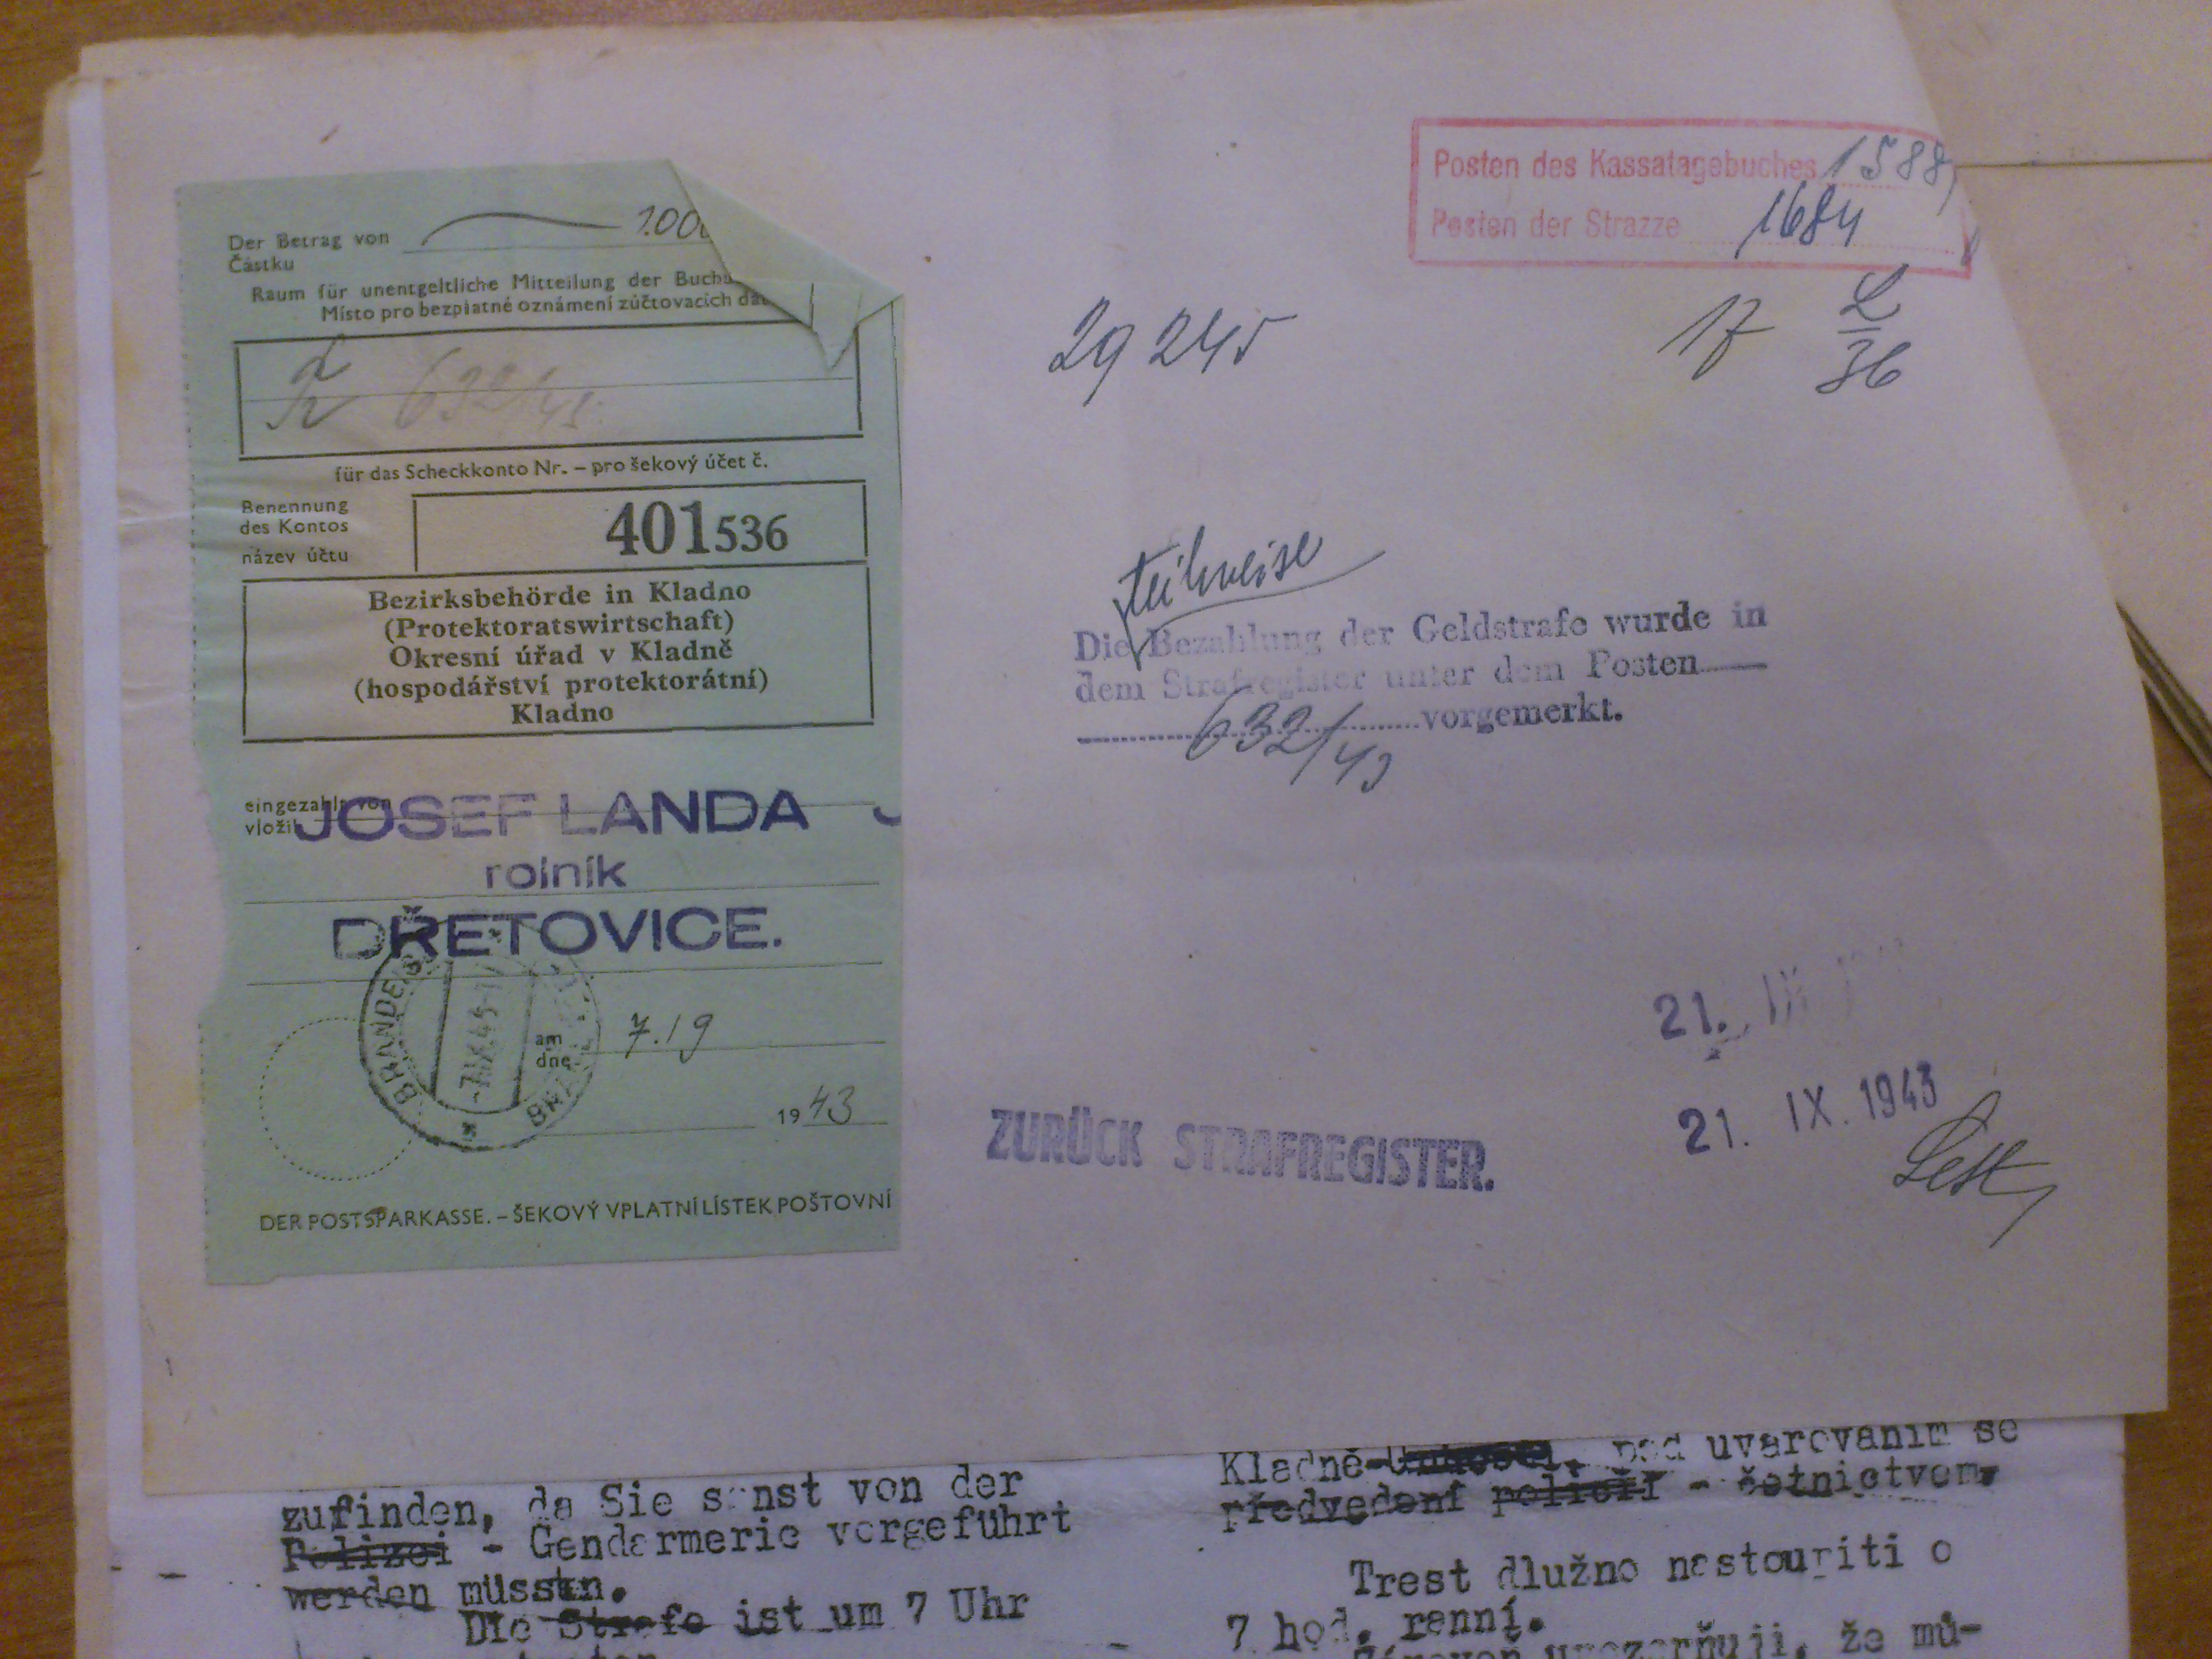 Der Betrag von 1.00
Částku
Raum für unentgeltliche Mitteilung der Buchu
Místo pro bezplatné oznámení zúčtovacích da
632/43
für das Scheckkonto Nr. – pro šekový účet č.
Benennung
des Kontos
název účtu
401536
Bezirksbehörde in Kladno
(Protektoratswirtschaft)
Okresní úřad v Kladně
(hospodářství protektorátní)
Kladno
eingezahlt von
vložil
JOSEF LANDA J
rolník
DŘETOVICE.
BRANDE
-7.IX.43-
am
dne
7.19
1943
DER POSTSPARKASSE. – ŠEKOVÝ VPLATNÍ LÍSTEK POŠTOVNÍ
Posten des Kassatagebuches 1588
Posten der Strazze 1684
29245
17 L
36
teilweise
Die Bezahlung der Geldstrafe wurde in
dem Strafregister unter dem Posten
632/43 vorgemerkt.
21. IX
21. IX. 1943
ZURÜCK STRAFREGISTER.
zufinden, da Sie sonst von der
Polizei - Gendarmerie vorgeführt
werden müssten.
Die Strafe ist um 7 Uhr
Kladně , pod uvarovanim se
předvedení policií - četnictvem,
Trest dlužno nastoupiti o
7 hod. ranní.
Zároveň upozorňuji, že mů-